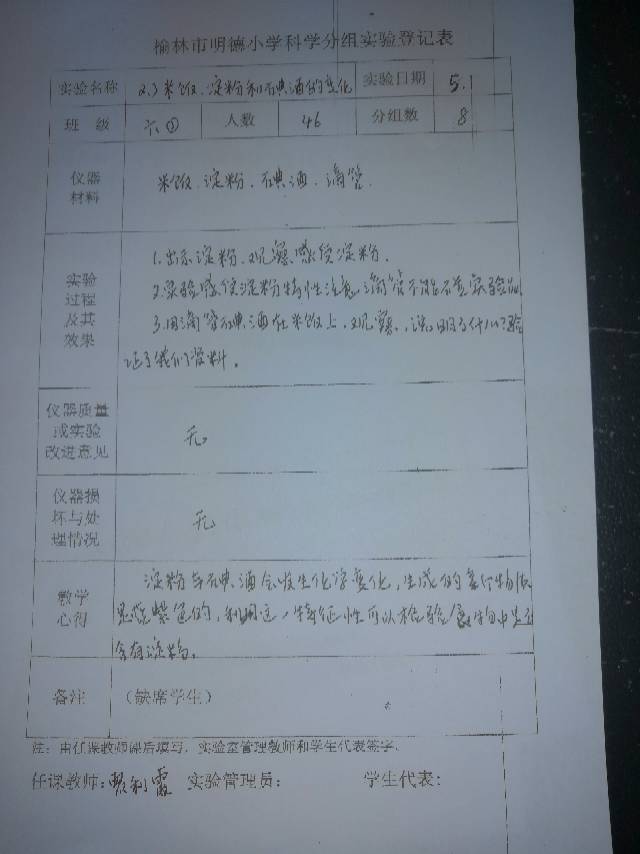 榆林市明德小学科学分组实验登记表
实验名称 2.3米饭、淀粉和碘酒的变化 实验日期 5.1
班 级 六① 人数 46 分组数 8
仪器材料 米饭、淀粉、碘酒、滴管
实验过程及其效果
1.出示淀粉、观察感受淀粉.
2.实验感受淀粉特性注意滴管不能
3.用滴管碘酒在米饭上,观察,说明了什么?验
证了我们资料。
仪器质量或实验改进意见 无
仪器损坏与处理情况 无
教学心得
淀粉与碘酒会发生化学变化,生成的
紫色的,利用这一特征性可以检验食物中是否
含有淀粉。
备注 (缺席学生)
注:由任课教师课后填写,实验室管理教师和学生代表签字。
任课教师: 利霞 实验管理员: 学生代表: